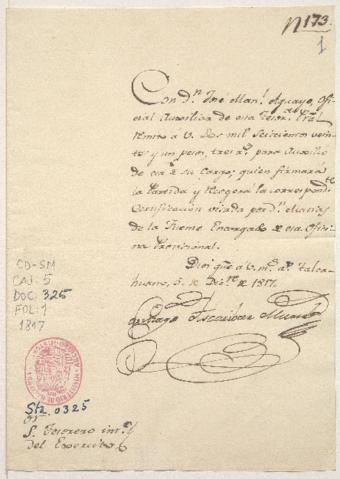 N 173.
1
Con Dn. José Manl. Aguayo, Ofi=
cial Auxiliar de esa Tesora. Re=
mito a V. Dos mil seiscientos vein=
te y un pesos, tres rs. para Auxilio
de esa a su cargo; quien firmará
la Partida y recogerá la correspondte.
Certificacion visada por dn. Matias
de la Fuente Encargado de esa Ofici=
na Provicional.
Dios gue. a V. ms. as. Talca=
huano, 5. de Dizre. de 1817.
Santiago Ascacibar Murube
CD-SM
CAJ: 5
DOC: 325
FOL: 1
1817
Stz. 0325
Sr. Tesorero intº.
del Exercito